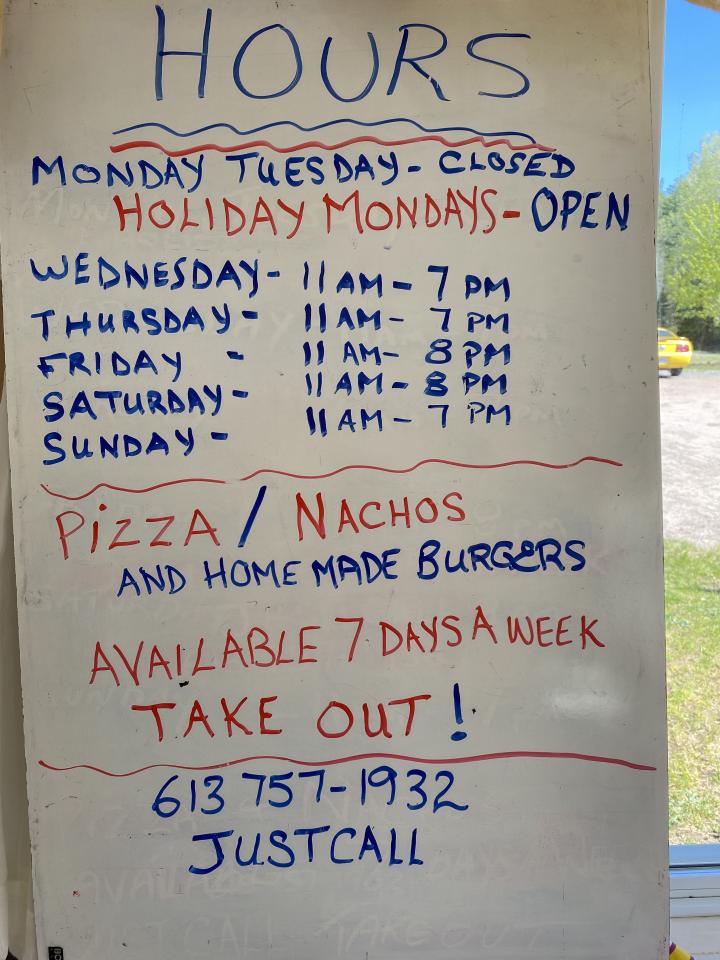 HOURS
MONDAY TUESDAY - CLOSED
HOLIDAY MONDAYS - OPEN
WEDNESDAY - 11 AM - 7 PM
THURSDAY - 11 AM - 7 PM
FRIDAY - 11 AM - 8 PM
SATURDAY - 11 AM - 8 PM
SUNDAY - 11 AM - 7 PM
PIZZA / NACHOS
AND HOME MADE BURGERS
AVAILABLE 7 DAYS A WEEK
TAKE OUT!
613 757-1932
JUST CALL